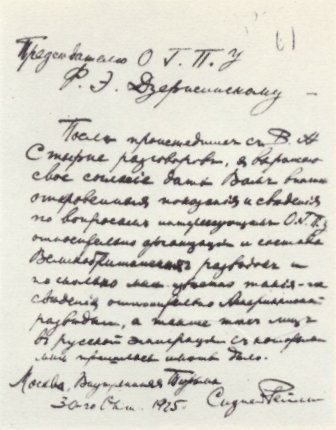 61
Председателю О Г. П. У
Ф. Э. Дзержинскому –
После происшедших съ В. А
Стырне разговоров, я выражаю
свое согласие дать Вамъ вполне
откровенные показания и сведения
по вопросам интересующим О.Г.П.У
относительно организации и состава
Великобританской разведки и
по сколько мне известно такія-же
сведения относительно Американской
разведки, а также тех лиц
въ русской эмиграции съ которыми
мне пришлось иметь дело.
Москва, Внутренняя Тюрьма
30-го Окт. 1925. Сидней Рейлли